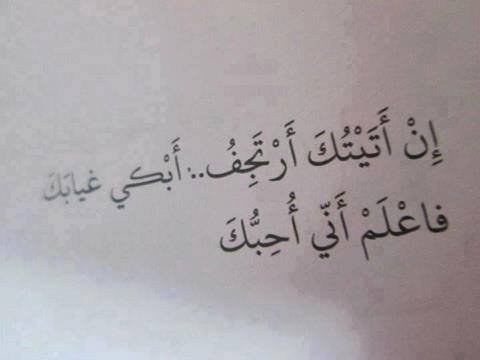 إِنْ أَتَيْتُكَ أَرْتَجِفُ..: أَبْكي غيابَكَ
فاعْلَمْ أَنّي أُحِبُّكَ